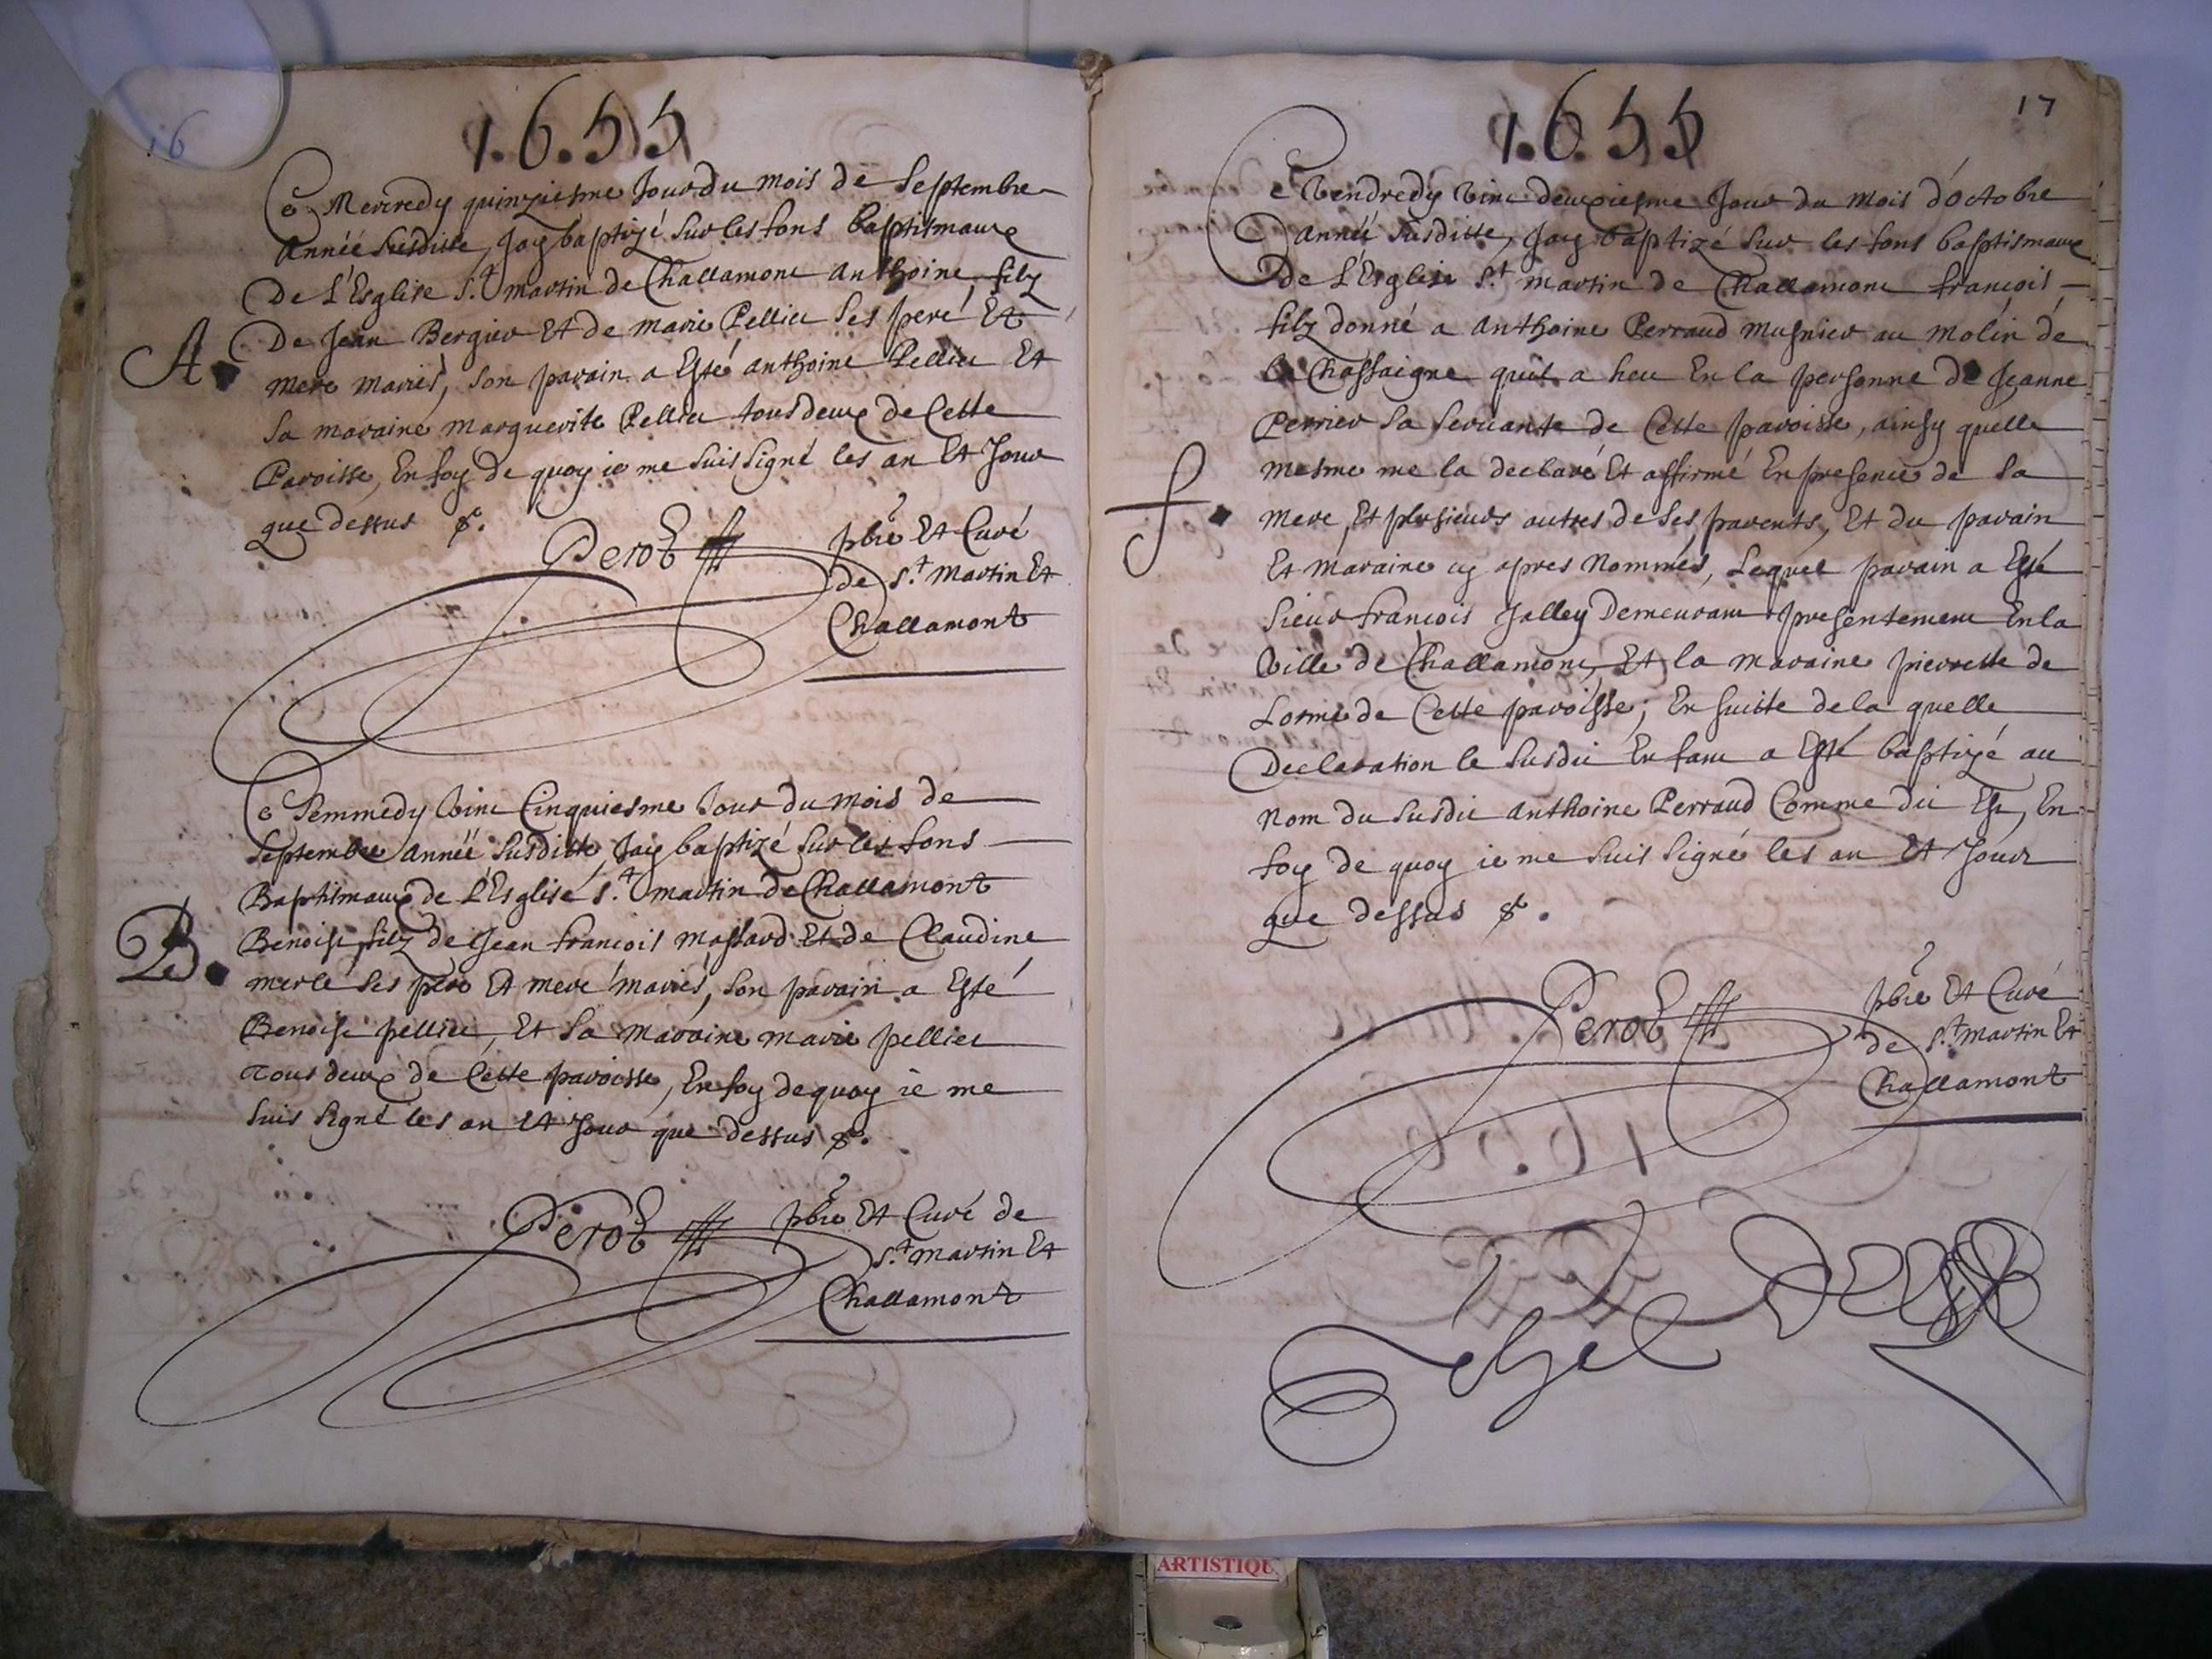 16
1.6.55
Ce Mercredy quinziesme Jour du mois de Septembre
Année Susditte, Jay baptizé Sur les fons baptismaux
De L'Esglise S.t martin de Challamont anthoine, filz
De Jean Bergier Et de marie Pellier Ses peré Et
A.
mere mariés, Son parain a Esté anthoine Pellier Et
Sa maraine marguerite Pellier tous deux de Cette
Paroisse, En foy De quoy ie me Suis Signé les an Et Jour
que dessus &.
Perot
pbre Et Curé
de S.t Martin Et
Challamont
Ce Semmedy Vint Cinquiesme Jour du mois de
Septembre année Susditte, Jay baptizé Sur les fons
Baptismaux de L'Esglise S.t martin de Challamont
B.
Benoist, filz de Jean françois massard Et de Claudine
merle Ses pere Et mere mariés, Son parain a Esté
Benoist pellier, Et Sa maraine marie pellier
Tous deux de Cette paroisse, En foy de quoy ie me
Suis Signé les an Et Jour que dessus &.
Perot
pbre Et Curé de
S.t Martin Et
Challamont
17
1.6.55
Ce Vendredy Vint deuxiesme Jour du Mois d'octobre
Année Susditte, Jay baptizé Sur les fons baptismaux
De L'Esglise S.t martin de Challamont françois
filz donné a anthoine Perraud musnier au molin de
la Chassaigne quil a heu En la personne de Jeanne
Perrier Sa Servante de Cette paroisse, ainsy quelle
mesme me la declaré Et affirmé En presence de Sa
f.
mere, Et plusieurs autres de Ses parents, Et du parain
Et maraine cy apres Nommés, Lequel parain a Esté
Sieur françois Jalley Demeurant presentement En la
Ville de Challamont, Et la maraine pierrette de
Lorme de Cette paroisse; En Suitte de la quelle
Declaration le Susdit Enfant a Esté baptizé au
Nom du Susdit anthoine Perraud Comme dit Est, En
foy de quoy ie me Suis Signé les an Et Jour
que dessus &.
Perot
pbre Et Curé
de S.t Martin Et
Challamont
ARTISTIQU